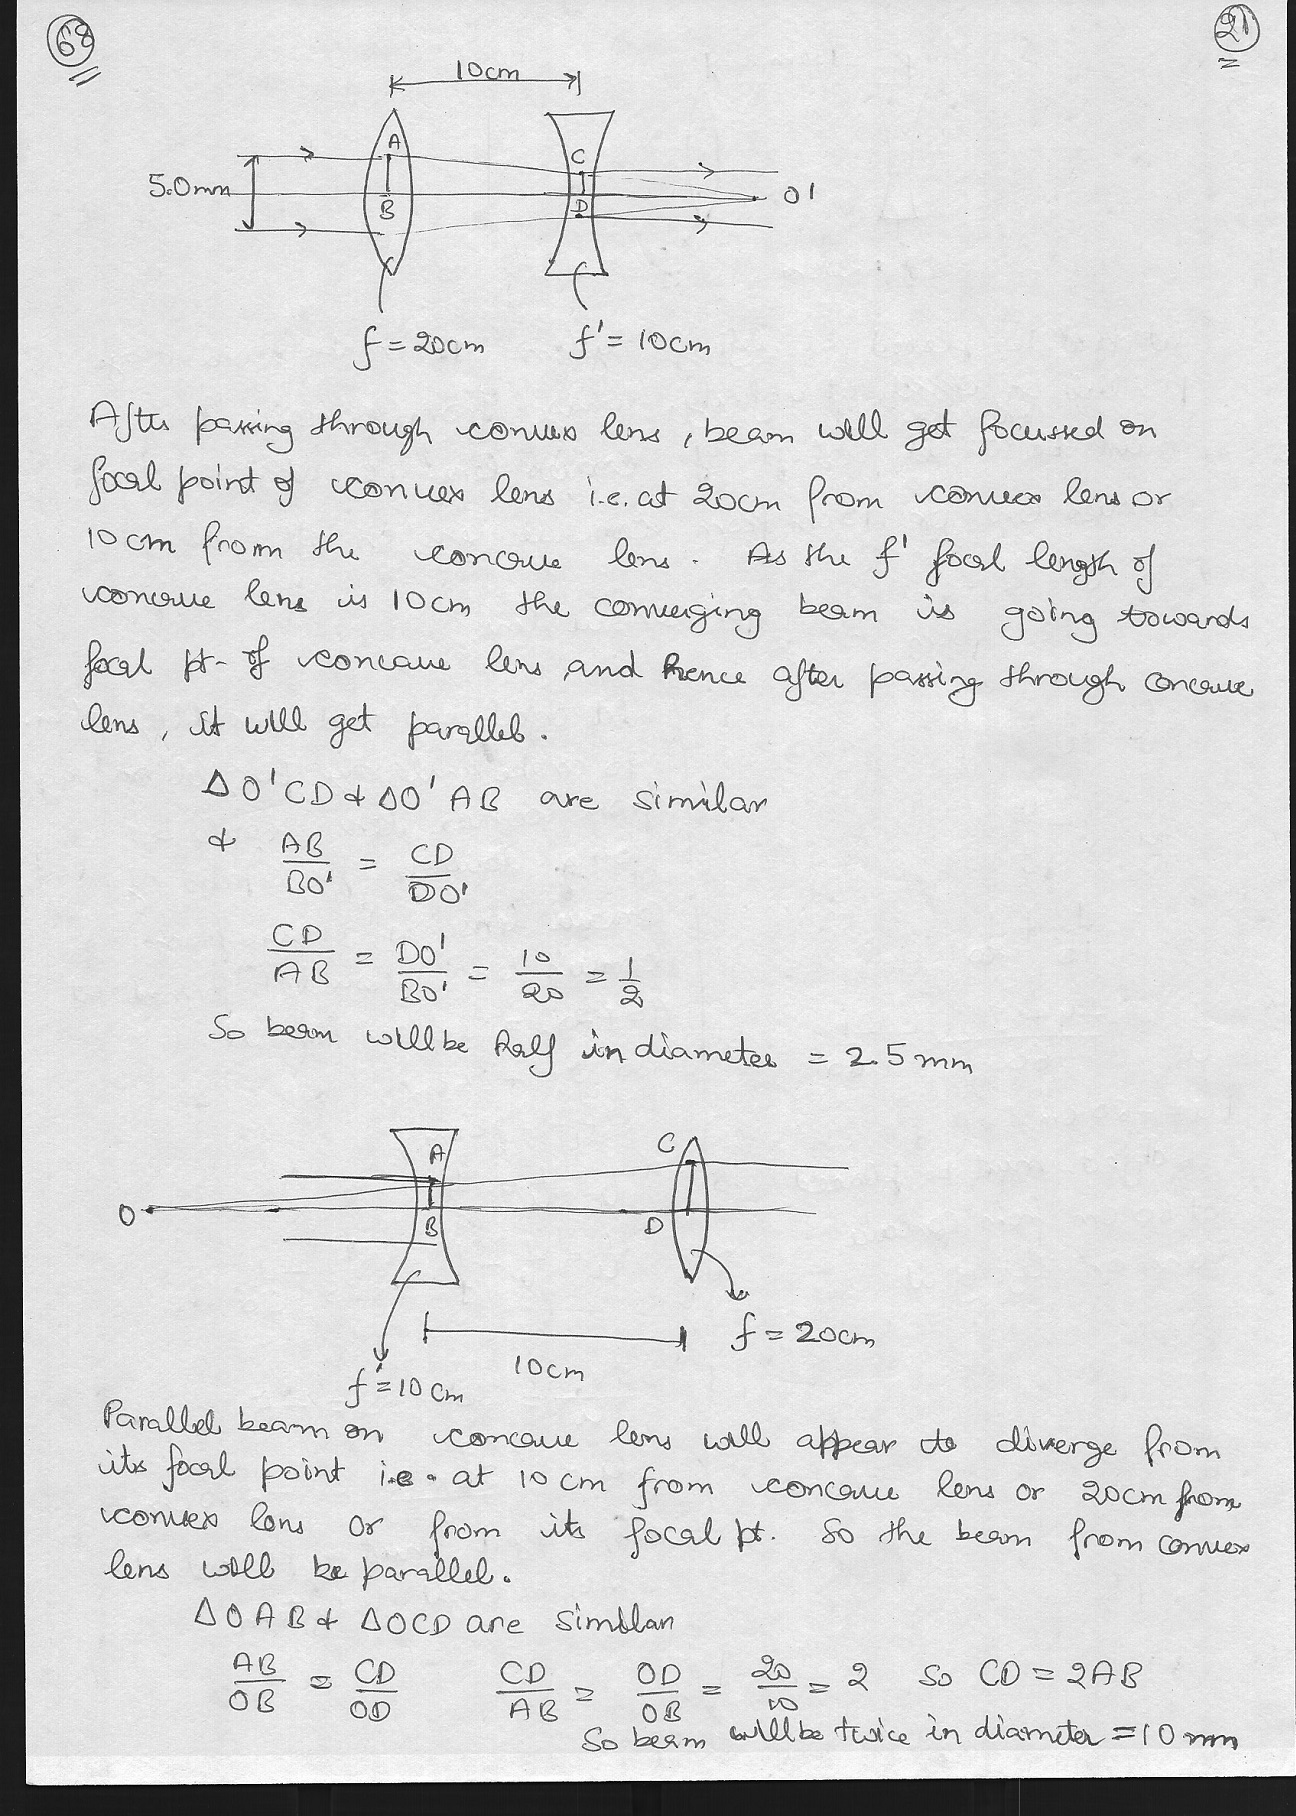 68
21
10cm
A
C
5.0mm
B
D
O'
f = 20cm
f' = 10cm
After passing through convex lens, beam will get focussed on
focal point of convex lens i.e. at 20cm from convex lens or
10cm from the concave lens. As the f' focal length of
concave lens is 10cm the converging beam is going towards
focal pt. of concave lens and hence after passing through concave
lens, it will get parallel.
Δ O'CD & ΔO'AB are similar
& AB/BO' = CD/DO'
CD/AB = DO'/BO' = 10/20 = 1/2
So beam will be half in diameter = 2.5mm
A
C
O
B
D
f = 20cm
10cm
f' = 10cm
Parallel beam on concave lens will appear to diverge from
its focal point i.e. at 10cm from concave lens or 20cm from
convex lens or from its focal pt. So the beam from convex
lens will be parallel.
ΔOAB & ΔOCD are similar
AB/OB = CD/OD CD/AB = OD/OB = 20/10 = 2 So CD = 2AB
So beam will be twice in diameter = 10mm